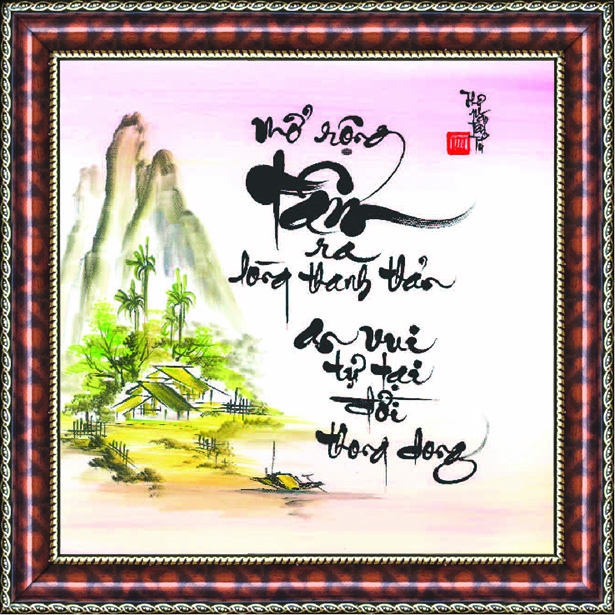 Mở rộng
tâm
ra
lòng thanh thản
an vui
tự tại
đời
thong dong